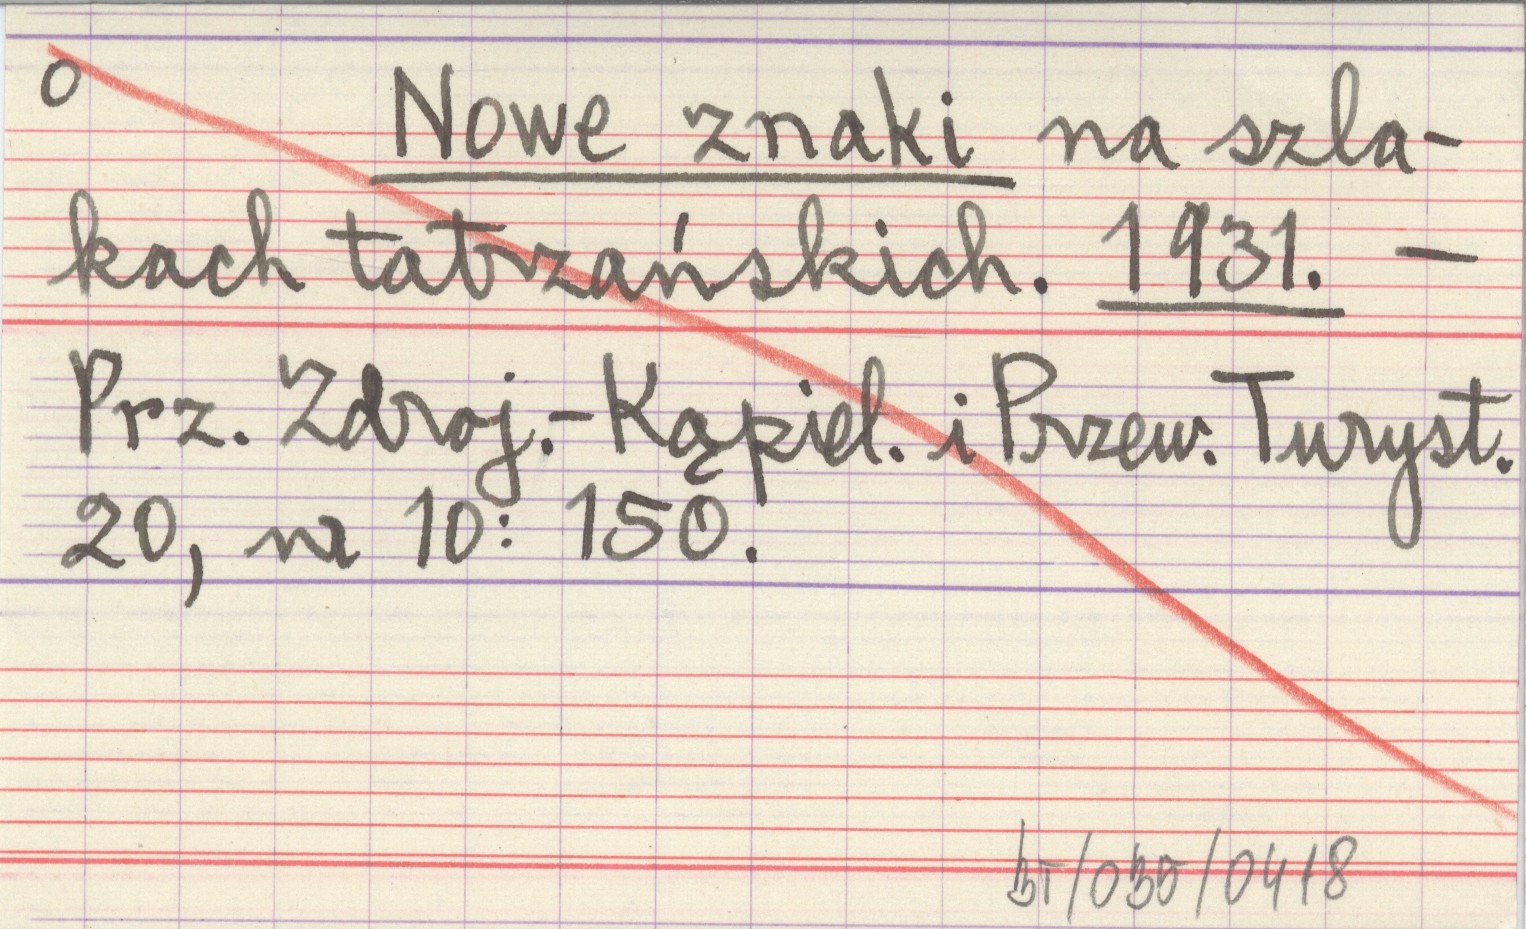 o
Nowe znaki na szla-
kach tatrzańskich. 1931. —
Prz. Zdroj.-Kąpiel. i Przew. Turyst.
20, nr 10: 150.
BT/030/0418